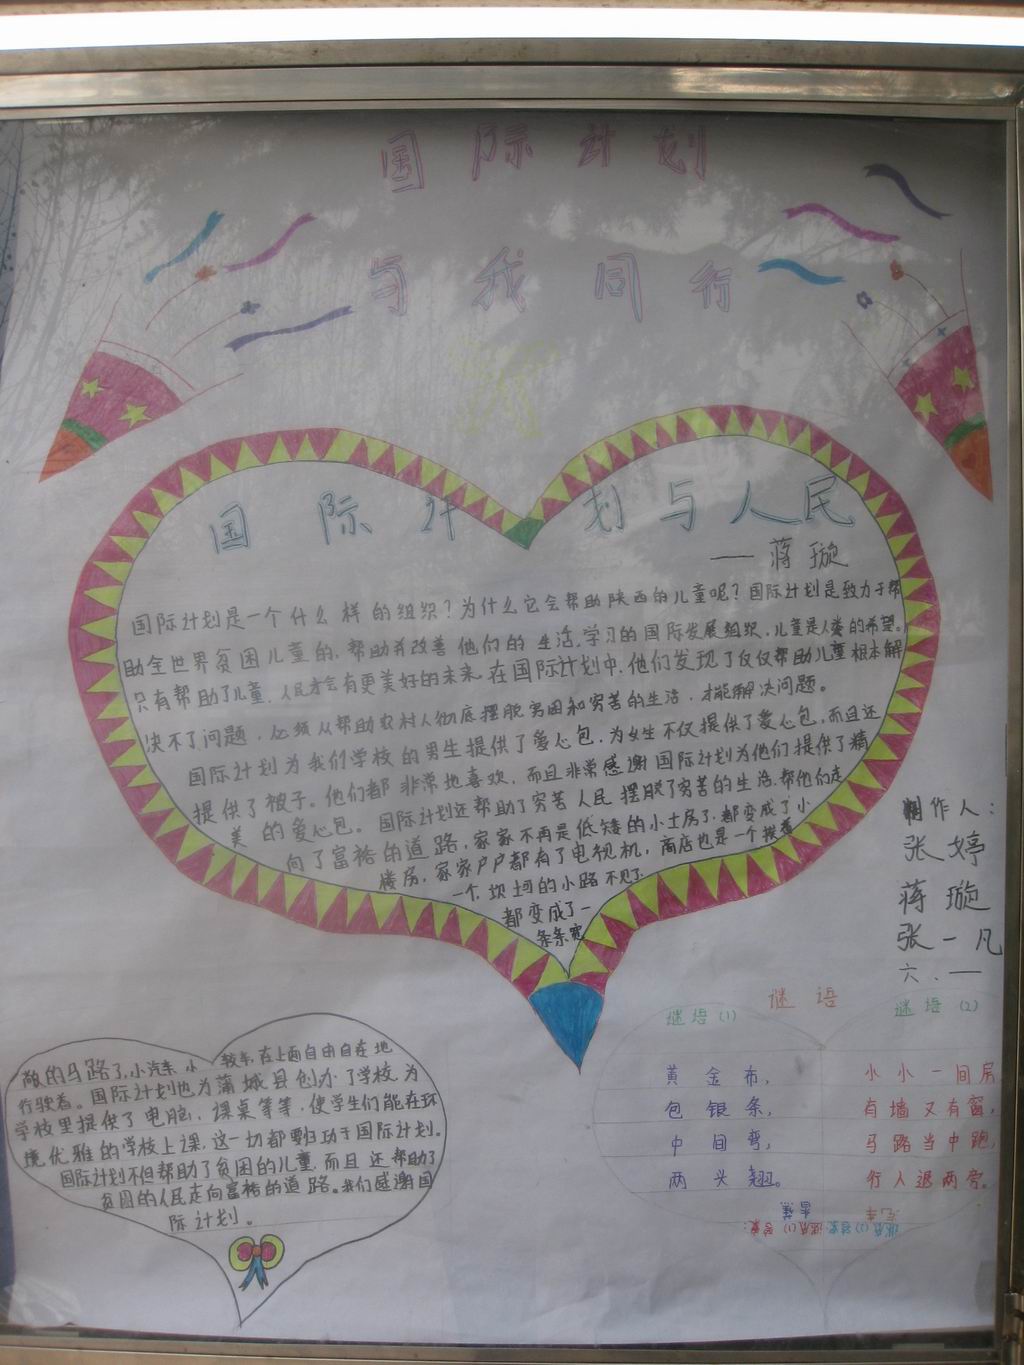 国际计划
与我同行
国际计划与人民
——蒋璇
国际计划是一个什么样的组织？为什么它会帮助陕西的儿童呢？国际计划是致力于帮
助全世界贫困儿童的，帮助并改善他们的生活，学习的国际发展组织，儿童是人类的希望。
只有帮助了儿童，人民才会有更美好的未来。在国际计划中，他们发现了仅仅帮助儿童根本解
决不了问题，必须从帮助农村人彻底摆脱穷困和穷苦的生活，才能解决问题。
国际计划为我们学校的男生提供了爱心包，为女生不仅提供了爱心包，而且还
提供了被子。他们都非常地喜欢，而且非常感谢国际计划为他们提供了精
美的爱心包。国际计划还帮助了穷苦人民摆脱了穷苦的生活，帮他们走
向了富裕的道路，家家不再是低矮的小土房了，都变成了小
楼房，家家户户都有了电视机，商店也是一个挨着
一个，坎坷的小路不见了，
都变成了一
条条宽
敞的马路了，小汽车、小轿车，在上面自由自在地
行驶着。国际计划也为蒲城县创办了学校，为
学校里提供了电脑，课桌等等，使学生们能在环
境优雅的学校上课，这一切都要归功于国际计划。
国际计划不但帮助了贫困的儿童，而且还帮助了
贫困的人民走向富裕的道路。我们感谢国
际计划。
制作人：
张婷
蒋璇
张一凡
六．一
谜语
谜语（1）
黄金布，
包银条，
中间弯，
两头翘。
谜语（2）
小小一间房
有墙又有窗，
马路当中跑，
行人退两旁。
谜底（1）答案：香蕉
谜底（2）答案：汽车